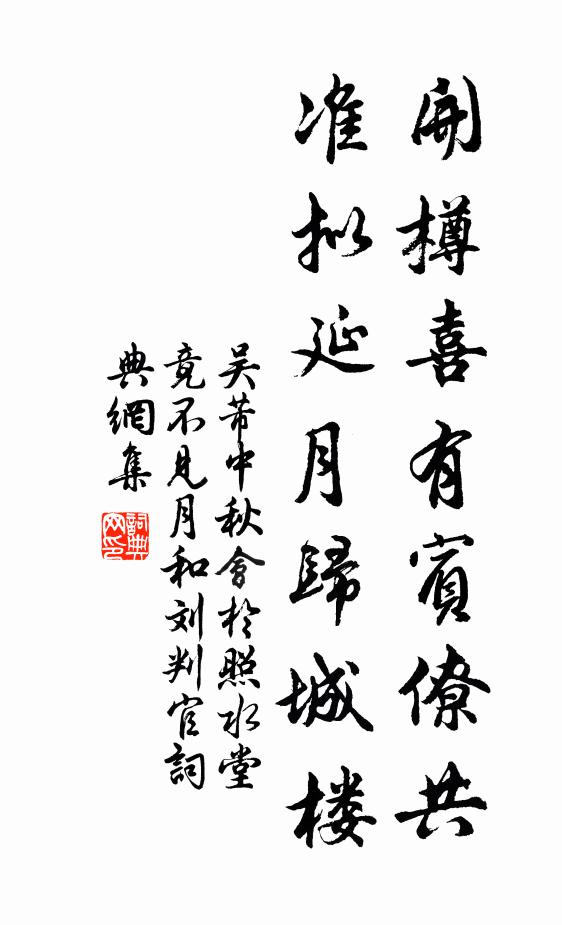 開樽喜有賓僚共
准拟延月歸城楼
吴芾中秋會於照水堂
竟不見月和刘判官詞
典網集
詞典
网印